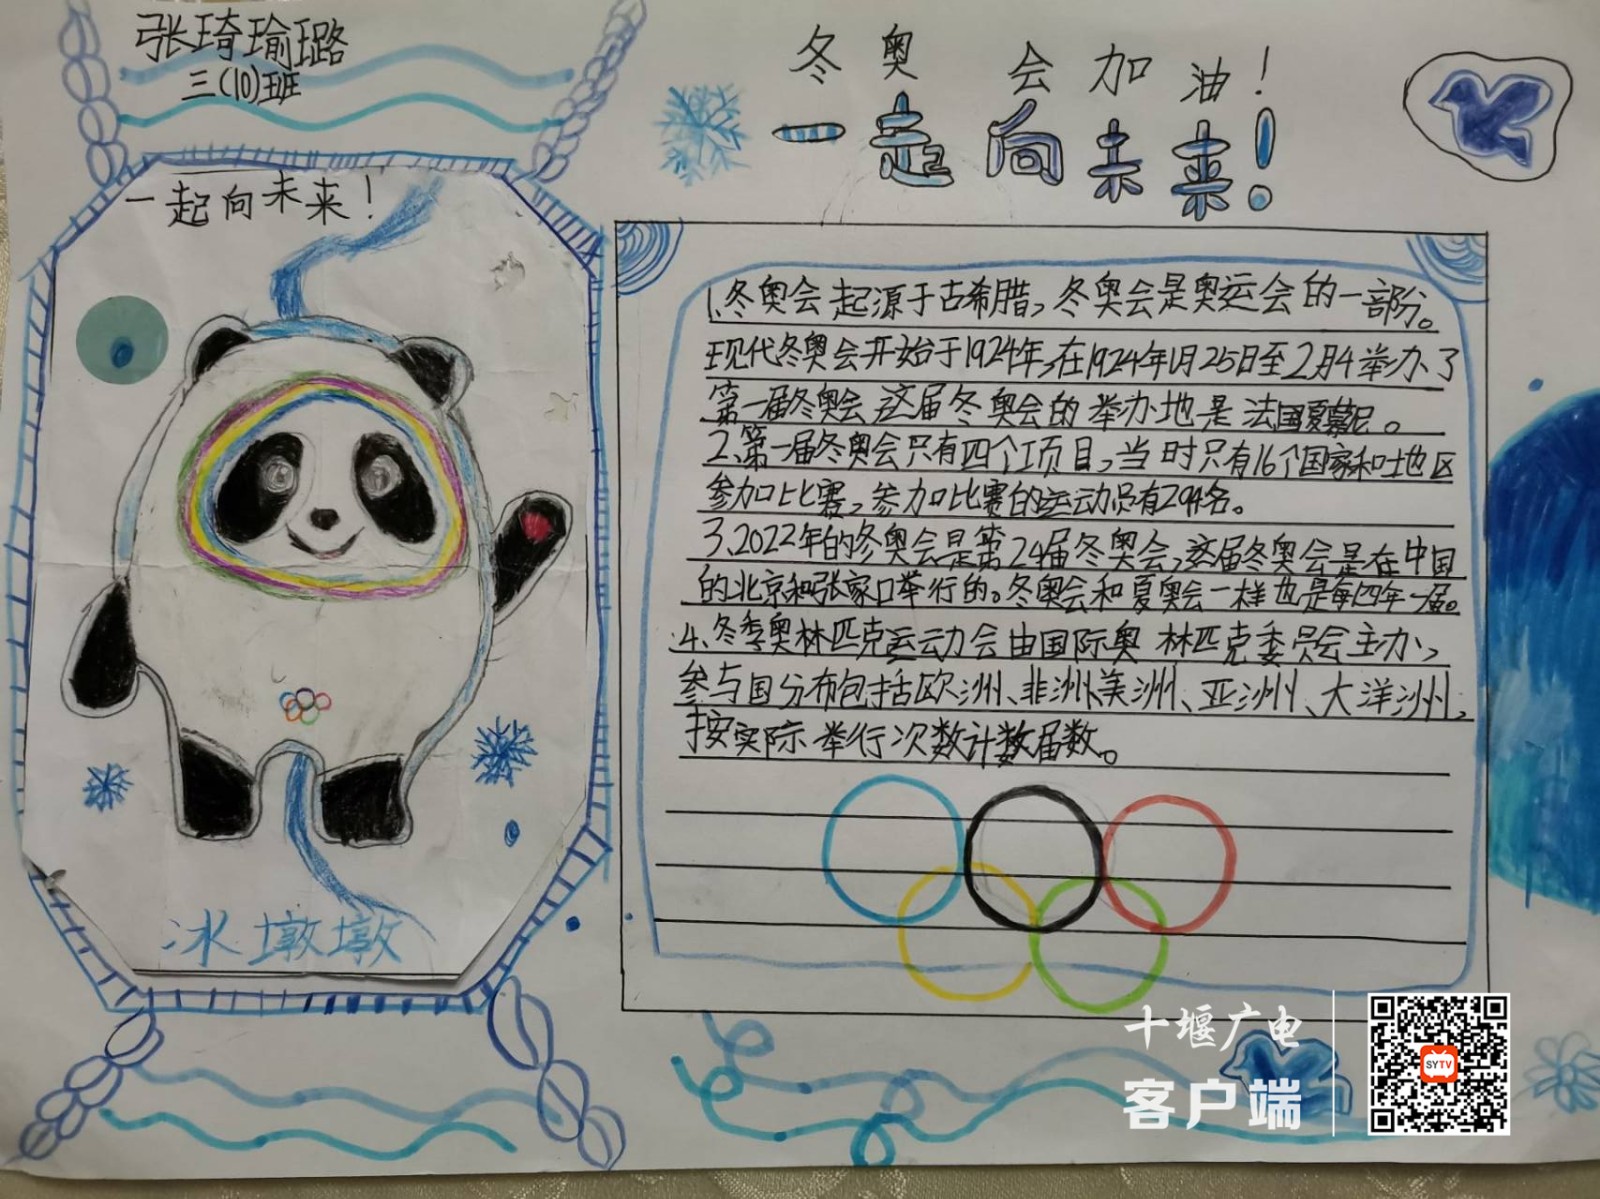 张琦瑜璐
三(10)班
冬奥会加油!
一起向未来!
一起向未来!
冰墩墩
1、冬奥会起源于古希腊,冬奥会是奥运会的一部分。
现代冬奥会开始于1924年,在1924年1月25日至2月4举办了
第一届冬奥会这届冬奥会的举办地是法国夏慕尼。
2、第一届冬奥会只有四个项目,当时只有16个国家和地区
参加比赛,参加比赛的运动员有294名。
3、2022年的冬奥会是第24届冬奥会,这届冬奥会是在中国
的北京和张家口举行的。冬奥会和夏奥会一样也是每四年一届。
4、冬季奥林匹克运动会由国际奥林匹克委员会主办,
参与国分布包括欧洲、非洲、美洲、亚洲、大洋洲,
按实际举行次数计数届数。
十堰广电
客户端
SYTV